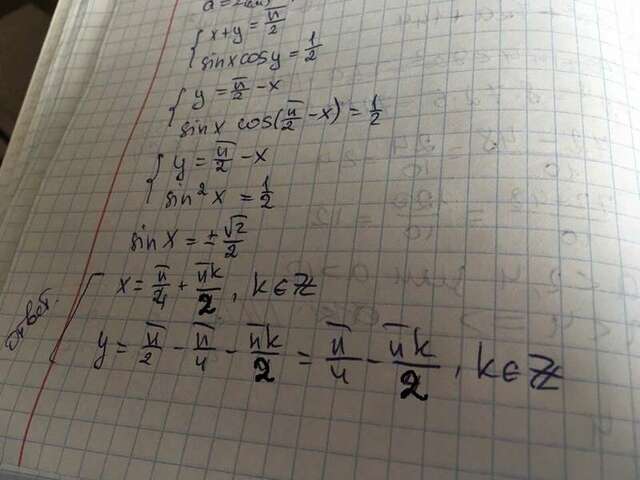 x+y = π/2
sin x cos y = 1/2
y = π/2 - x
sin x cos(π/2 - x) = 1/2
y = π/2 - x
sin² x = 1/2
sin x = ± √2/2
Ответ.
x = π/4 + πk/2, k∈ℤ
y = π/2 - π/4 - πk/2 = π/4 - πk/2, k∈ℤ